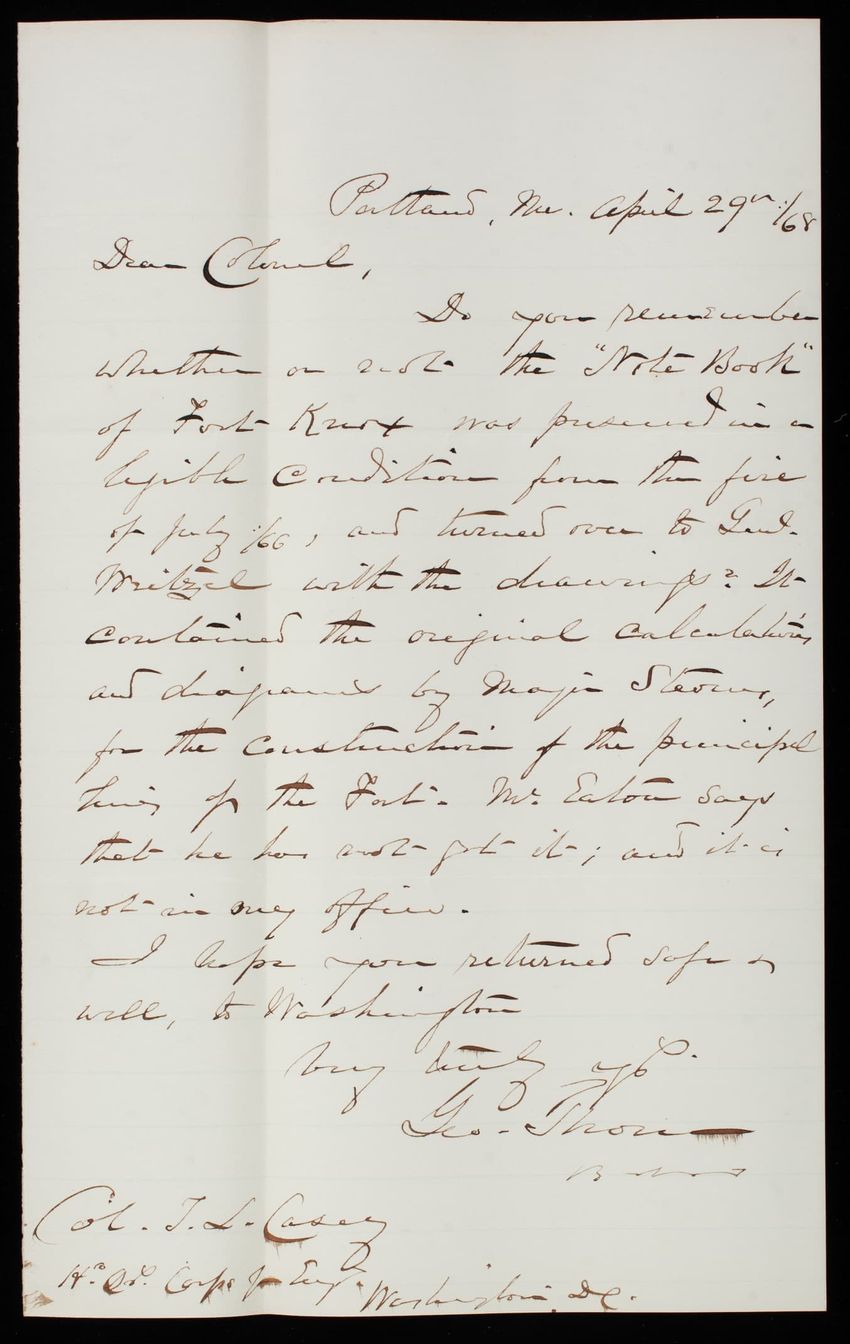 Portland, Me. April 29th /68
Dear Colonel,
Do you remember
whether or not the "Note Book"
of Fort Knox was preserved in a
legible condition from the fire
of July /66, and turned over to Genl.
Weitzel with the drawings? It
contained the original calculations
and diagrams by Major Stevens,
for the construction of the principal
lines of the Fort. Mr. Eaton says
that he has not got it; and it is
not in my office.
I hope you returned safe &
well, to Washington
Very truly yrs.
Geo. Thom
Col. T. L. Casey
Hd. Qrs. Corps of Eng.
Washington D.C.